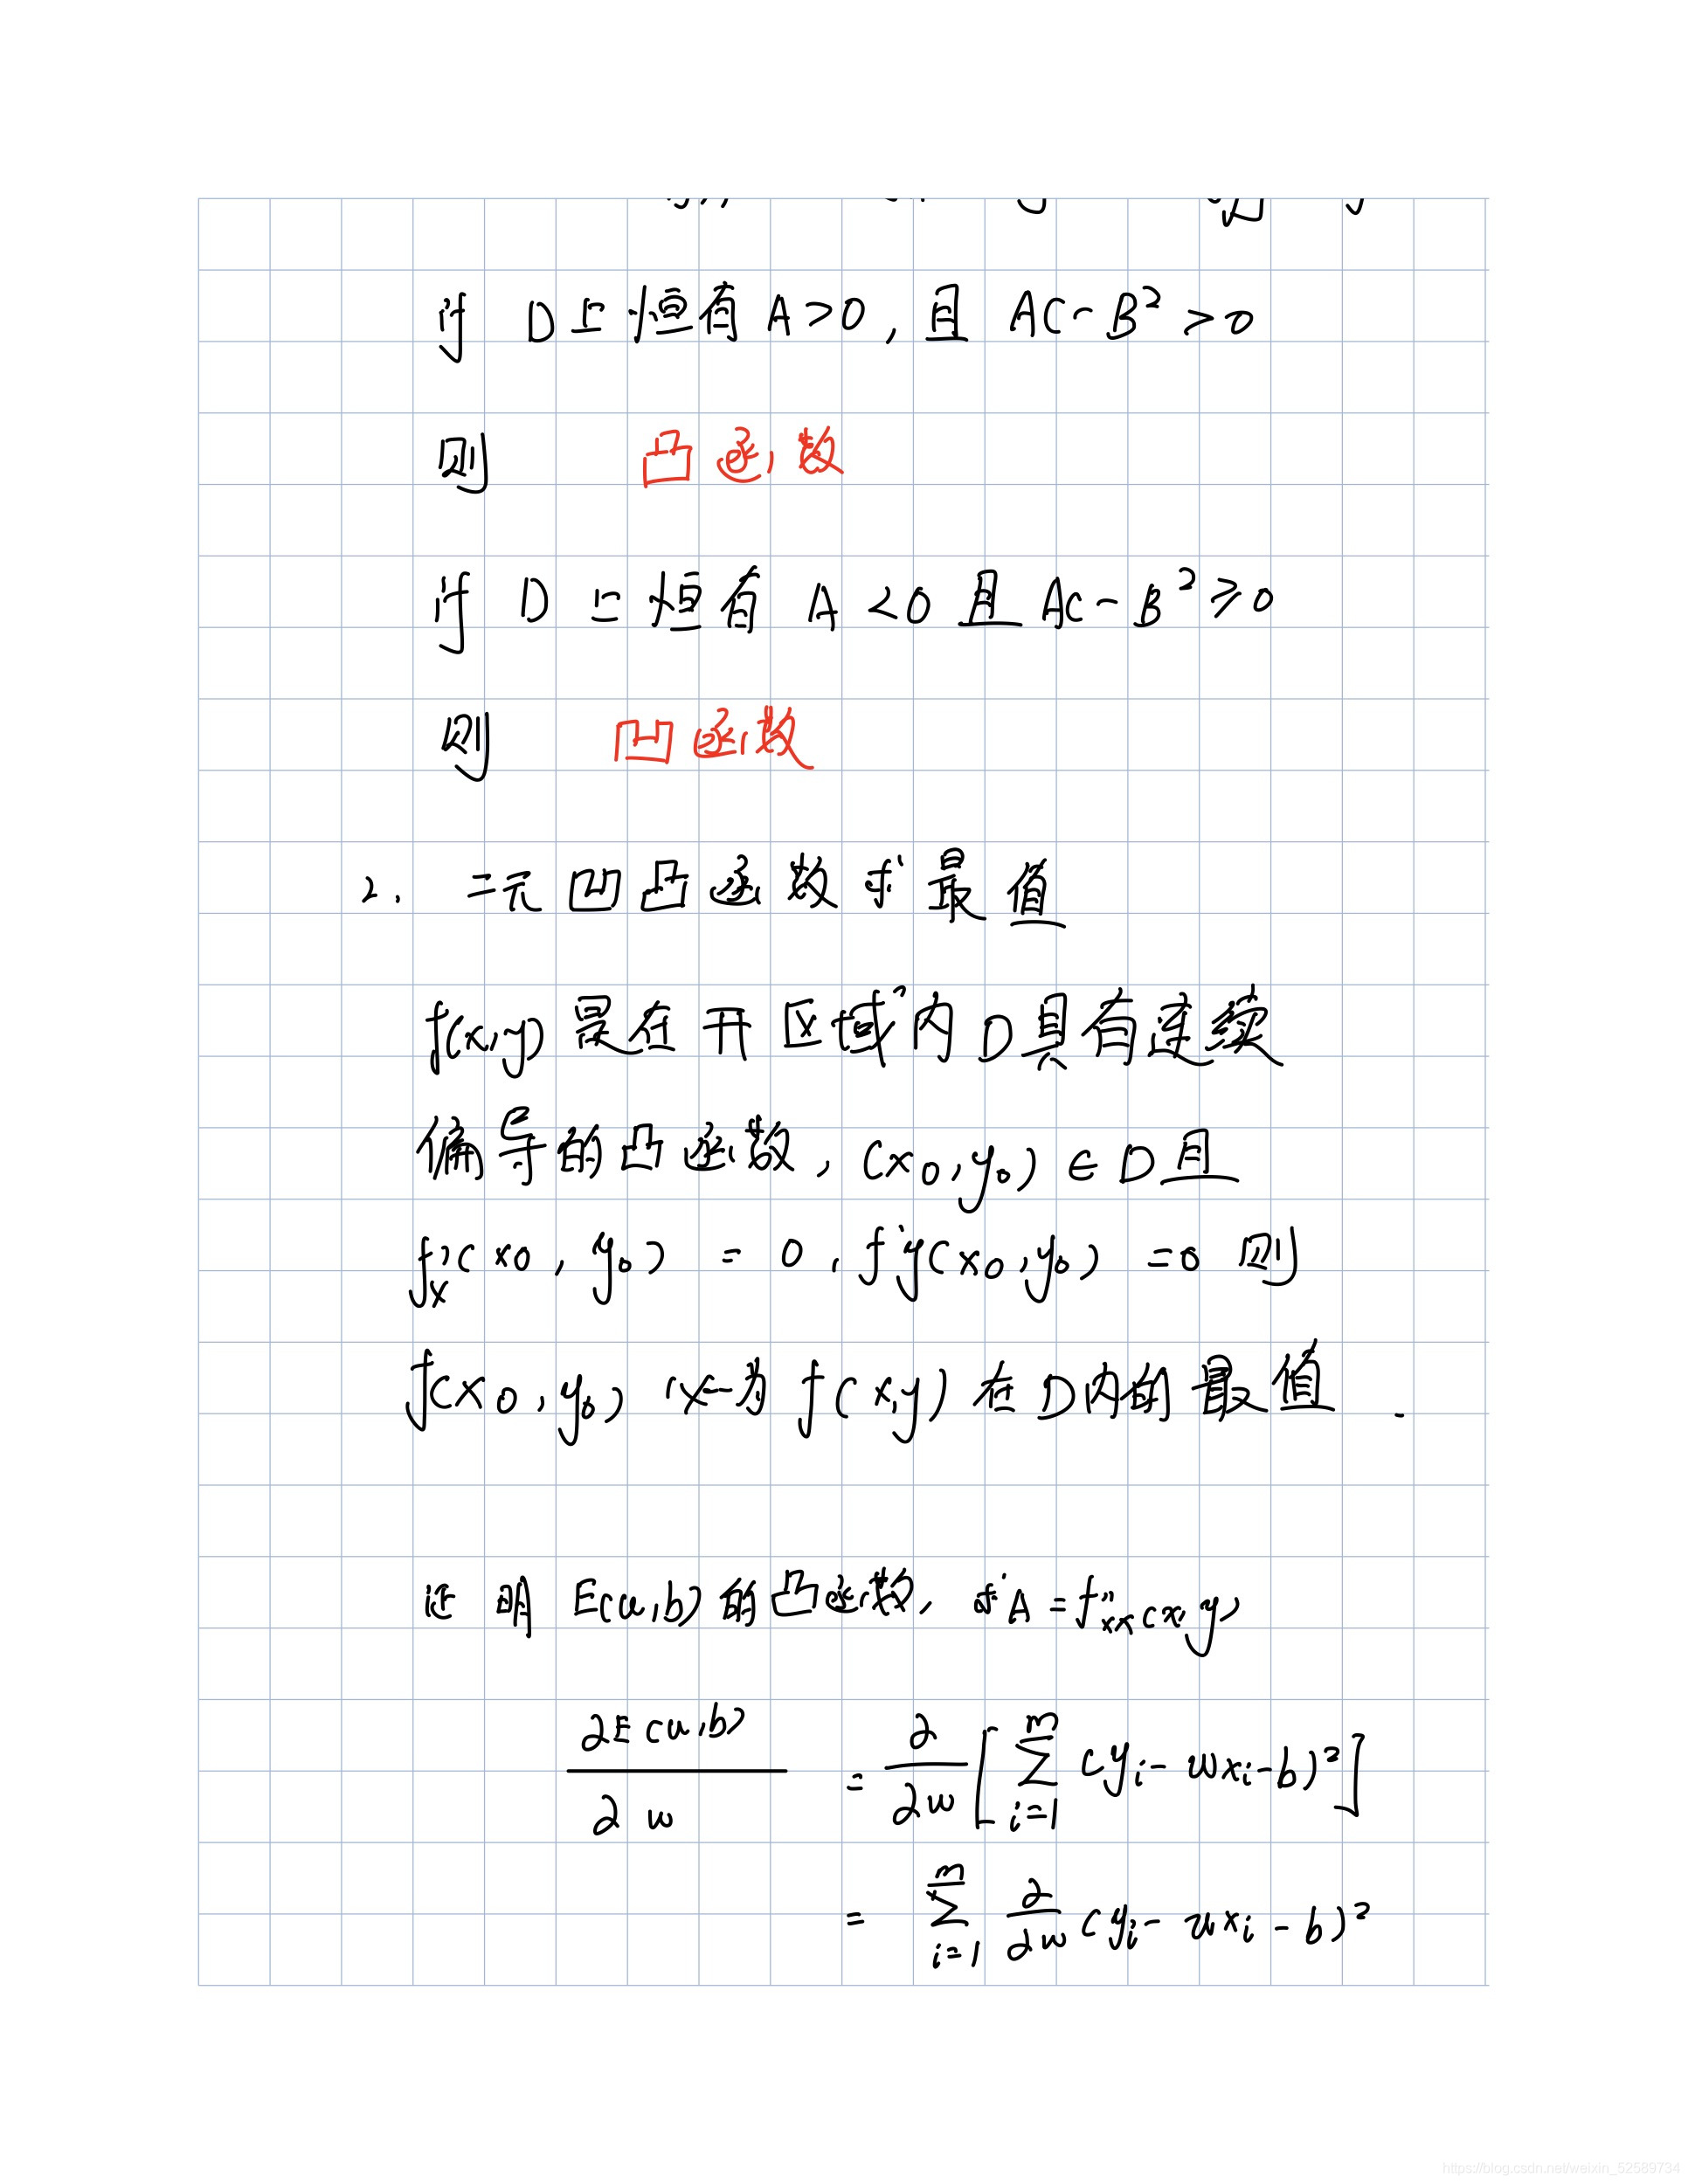 if D上恒有 A>0, 且 AC-B²>0
则 凸函数
if D 上恒有 A<0 且 AC-B²≥0
则 凹函数
2. 二元凹凸函数求最值
f(x,y) 是在开区域内D具有连续
偏导的凸函数, (x0,y0)∈D且
f'x(x0,y0)=0, f'y(x0,y0)=0 则
f(x0,y0) 必为 f(x,y) 在D内的最值.
证明 E(w,b)的凸函数, 求A=f''xx(x,y)
∂E(w,b)/∂w = ∂/∂w[∑_{i=1}^{m}(yi-wxi-b)²]
= ∑_{i=1}^{m} ∂/∂w(yi-wxi-b)²
https://blog.csdn.net/weixin_52589734